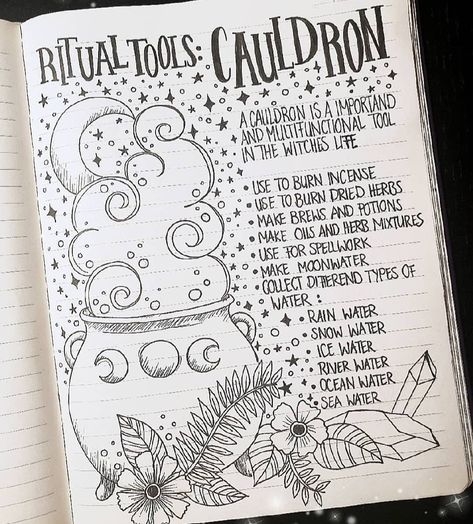 RITUAL TOOLS: CAULDRON
A CAULDRON IS A IMPORTAND
AND MULTIFUNCTIONAL TOOL
IN THE WITCHES LIFE
• USE TO BURN INCENSE
• USE TO BURN DRIED HERBS
• MAKE BREWS AND POTIONS
• MAKE OILS AND HERB MIXTURES
• USE FOR SPELLWORK
• MAKE MOONWATER
• COLLECT DIFFEREND TYPES OF
WATER :
• RAIN WATER
• SNOW WATER
• ICE WATER
• RIVER WATER
• OCEAN WATER
• SEA WATER